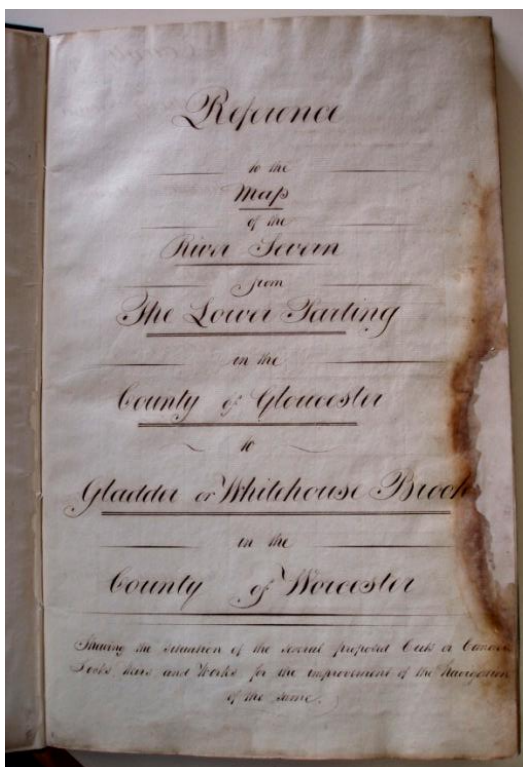 Reference
to the
Map
of the
River Severn
from
The Lower Parting
in the
County of Gloucester
to
Gladder or Whitehouse Brook
in the
County of Worcester
Shewing the Situation of the several proposed Cuts or
Locks Weirs and Works for the improvement of the Navigation
of the Same.